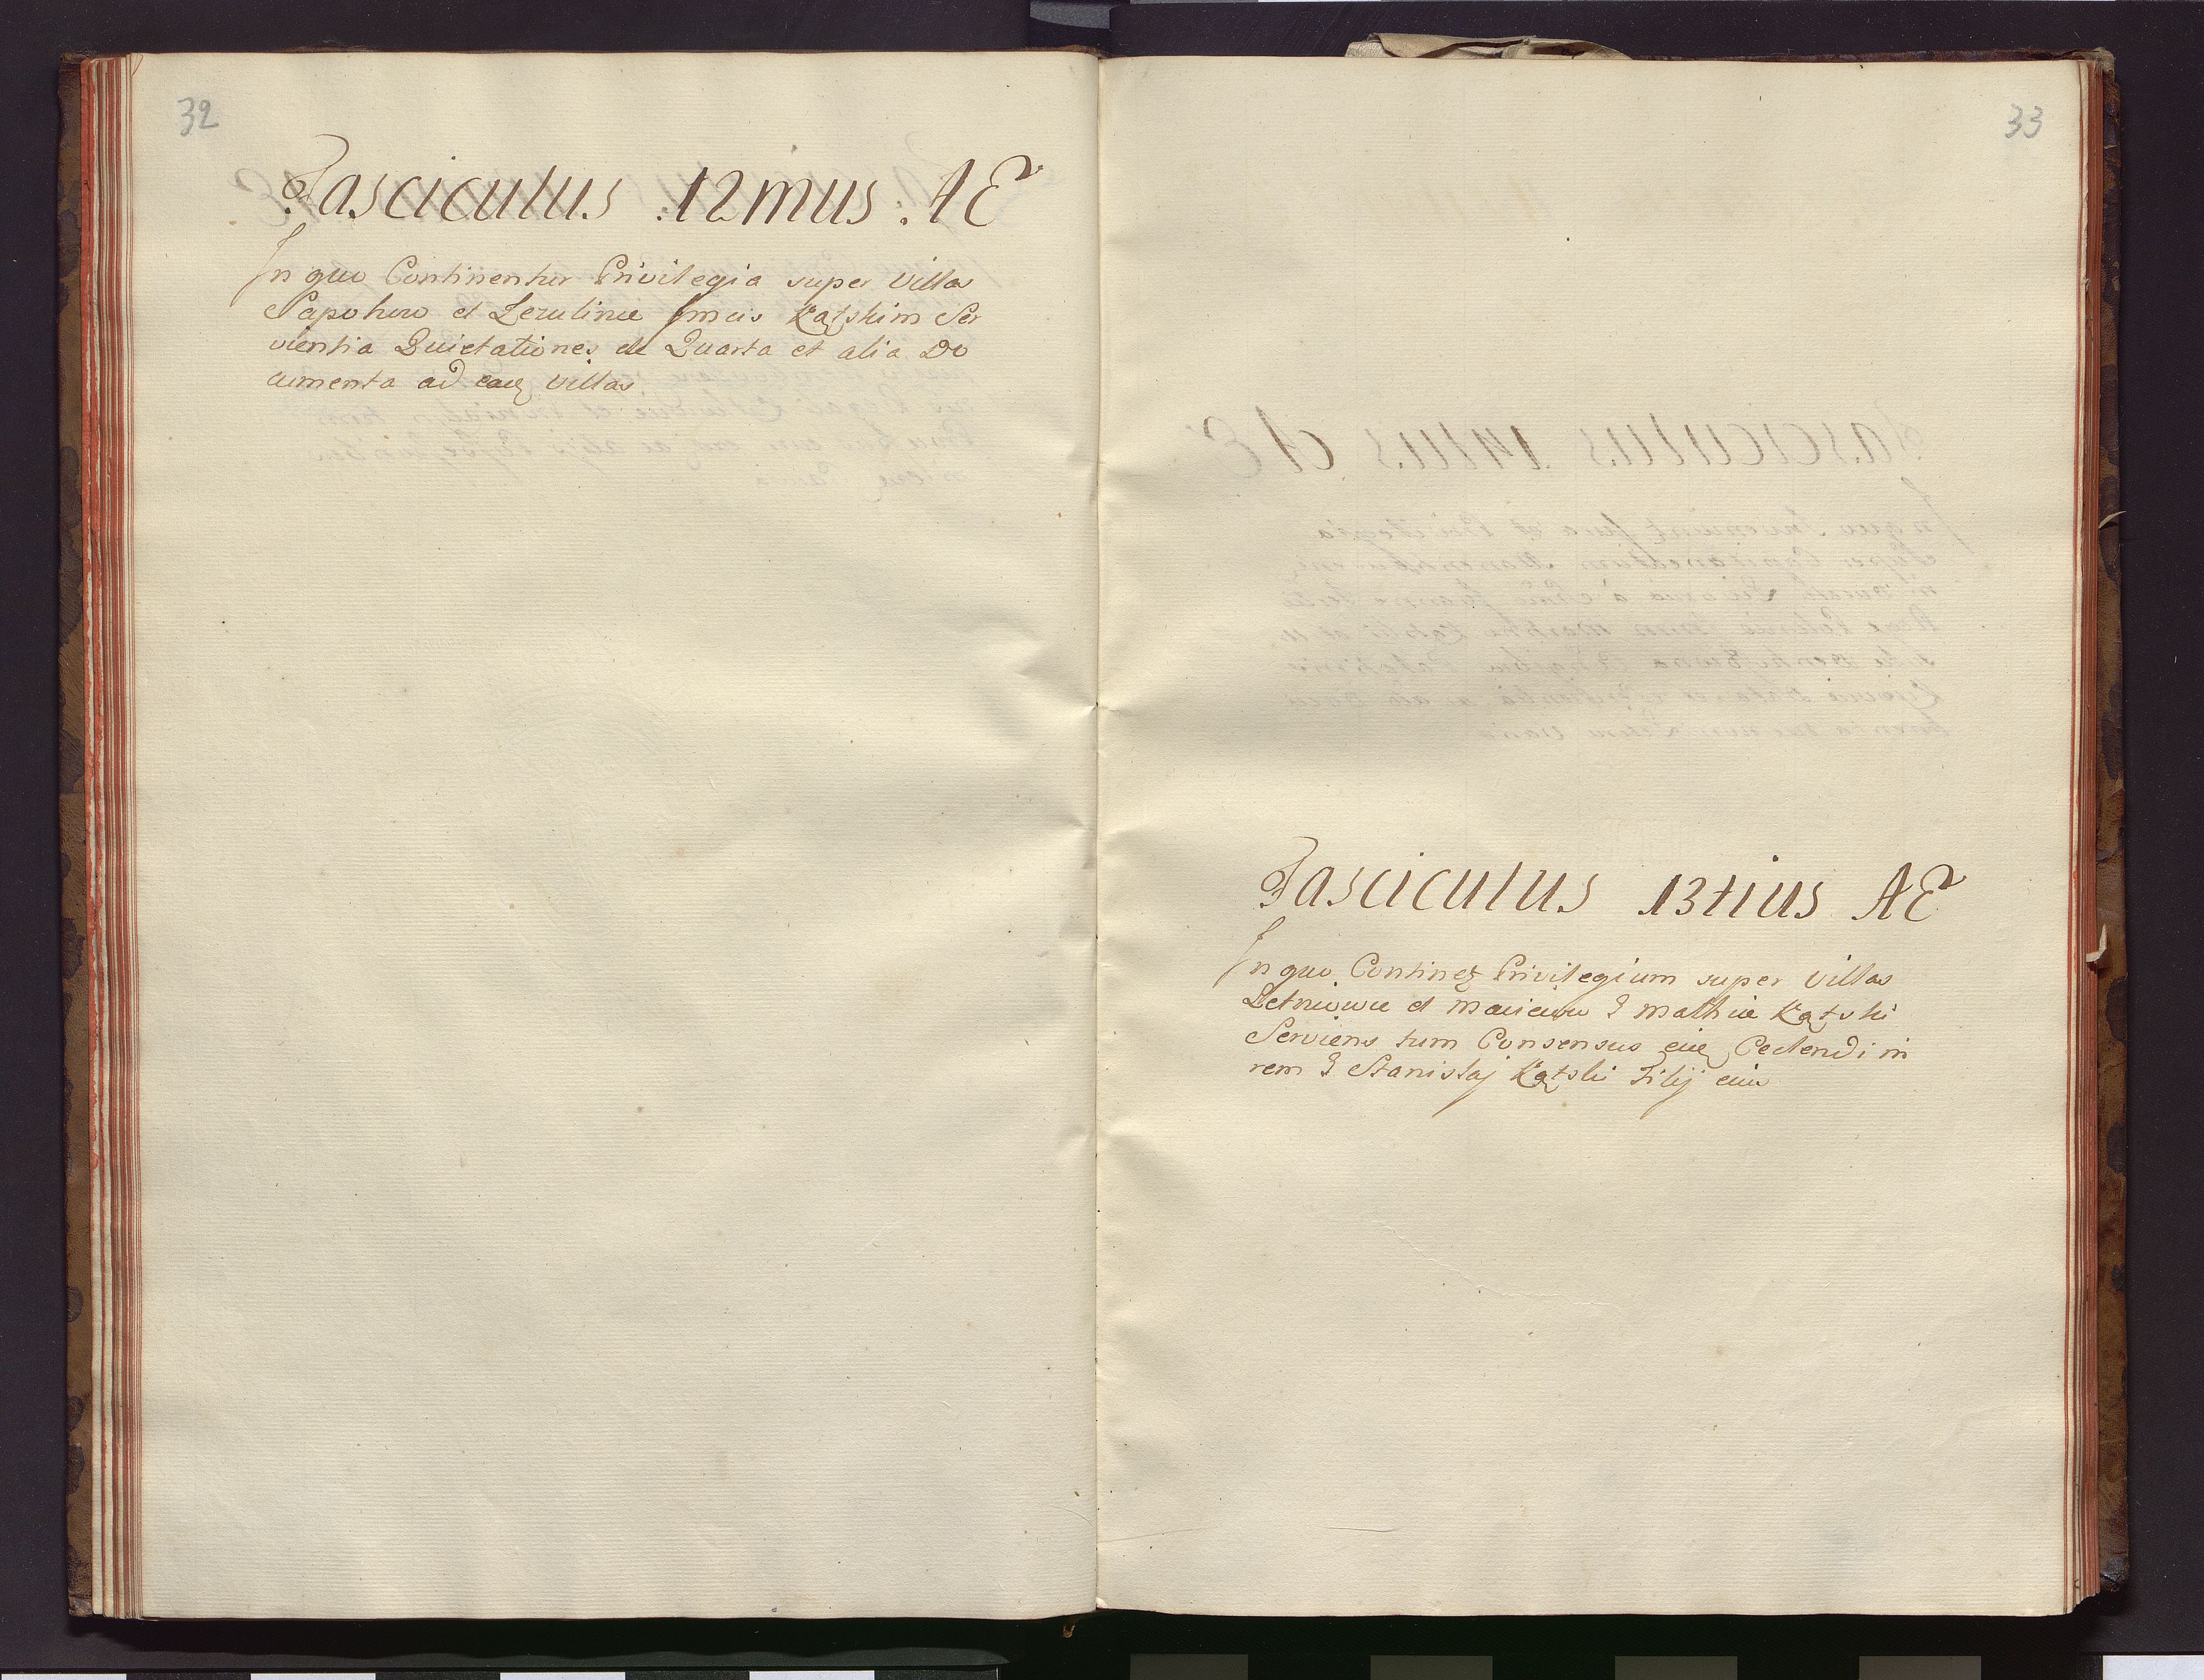 32
Fasciculus 12mus AE
In quo Continentur Privilegia super Villas
et Katskim Ser
vientia Quietationes de Quarta et alia Do
cumenta ad easq Villas
33
Fasciculus 13tius AE
In quo Continez Privilegium super Villas
et Mathiæ Kątski
Serviens tum Consensus Cedendi in
rem Stanislaj Kątski Filij eius